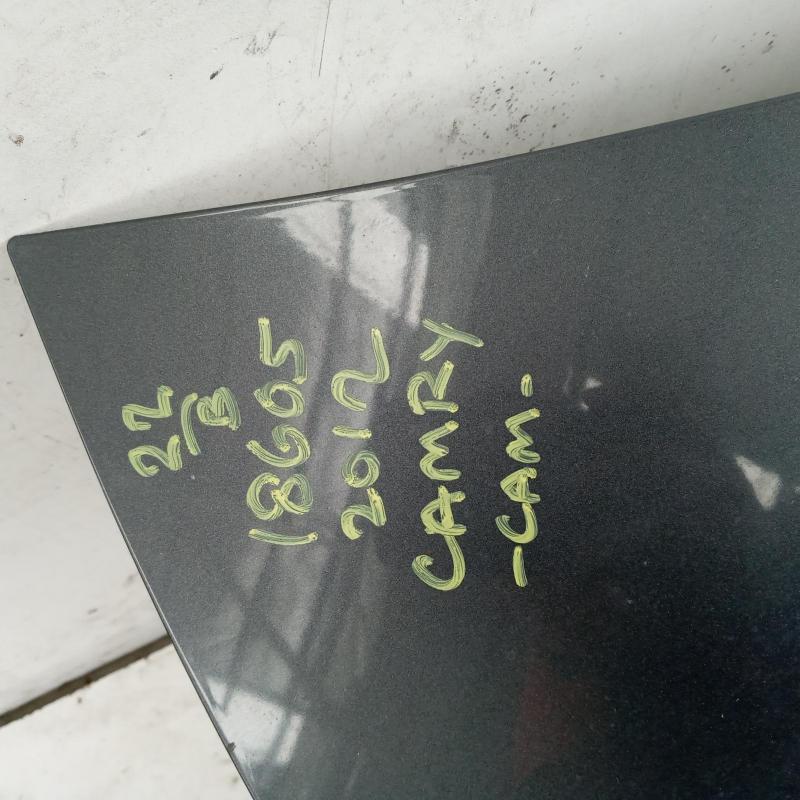 22
/B
18605
2012
CAMRY
-CAM.